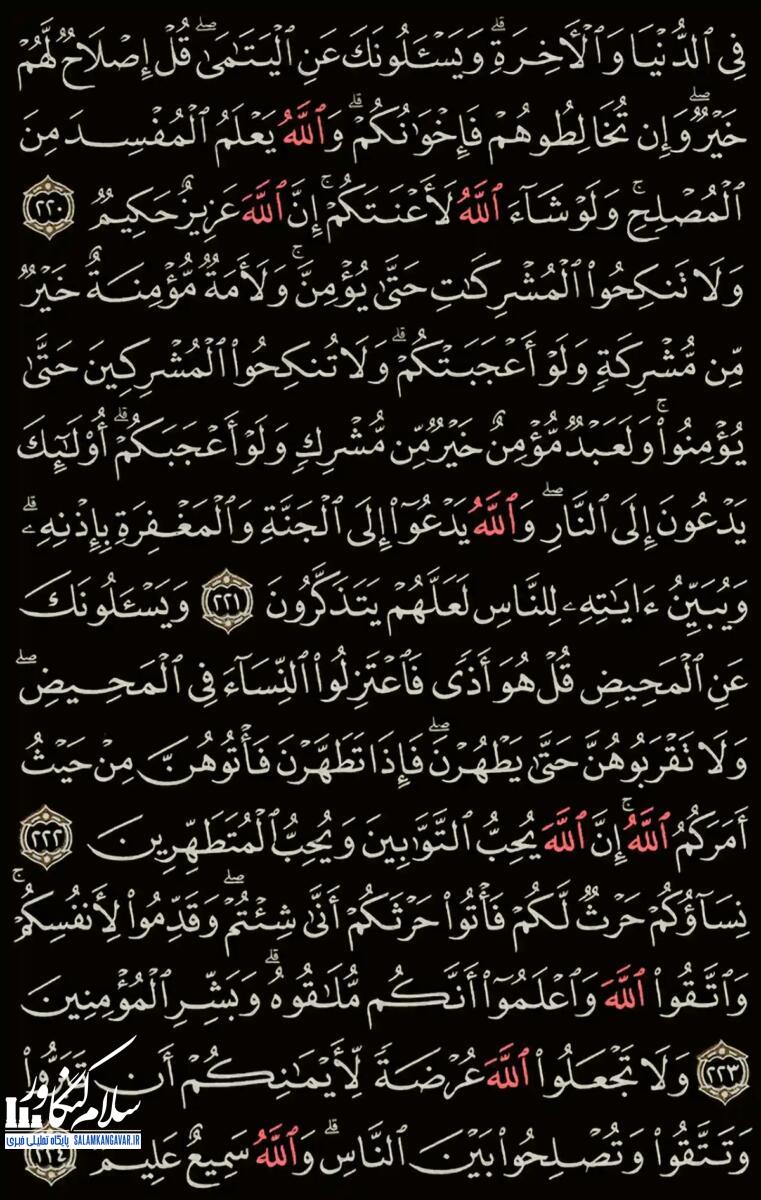 فِي ٱلدُّنۡيَا وَٱلۡأٓخِرَةِۗ وَيَسۡـَٔلُونَكَ عَنِ ٱلۡيَتَٰمَىٰۖ قُلۡ إِصۡلَاحٞ لَّهُمۡ
خَيۡرٞۖ وَإِن تُخَالِطُوهُمۡ فَإِخۡوَٰنُكُمۡۚ وَٱللَّهُ يَعۡلَمُ ٱلۡمُفۡسِدَ مِنَ
ٱلۡمُصۡلِحِۚ وَلَوۡ شَآءَ ٱللَّهُ لَأَعۡنَتَكُمۡۚ إِنَّ ٱللَّهَ عَزِيزٌ حَكِيمٞ ٢٢٠
وَلَا تَنكِحُواْ ٱلۡمُشۡرِكَٰتِ حَتَّىٰ يُؤۡمِنَّۚ وَلَأَمَةٞ مُّؤۡمِنَةٌ خَيۡرٞ
مِّن مُّشۡرِكَةٖ وَلَوۡ أَعۡجَبَتۡكُمۡۗ وَلَا تُنكِحُواْ ٱلۡمُشۡرِكِينَ حَتَّىٰ
يُؤۡمِنُواْۚ وَلَعَبۡدٞ مُّؤۡمِنٌ خَيۡرٞ مِّن مُّشۡرِكٖ وَلَوۡ أَعۡجَبَكُمۡۗ أُوْلَٰٓئِكَ
يَدۡعُونَ إِلَى ٱلنَّارِۖ وَٱللَّهُ يَدۡعُوٓاْ إِلَى ٱلۡجَنَّةِ وَٱلۡمَغۡفِرَةِ بِإِذۡنِهِۦۗ
وَيُبَيِّنُ ءَايَٰتِهِۦ لِلنَّاسِ لَعَلَّهُمۡ يَتَذَكَّرُونَ ٢٢١ وَيَسۡـَٔلُونَكَ
عَنِ ٱلۡمَحِيضِۖ قُلۡ هُوَ أَذٗى فَٱعۡتَزِلُواْ ٱلنِّسَآءَ فِي ٱلۡمَحِيضِۖ
وَلَا تَقۡرَبُوهُنَّ حَتَّىٰ يَطۡهُرۡنَۖ فَإِذَا تَطَهَّرۡنَ فَأۡتُوهُنَّ مِنۡ حَيۡثُ
أَمَرَكُمُ ٱللَّهُۚ إِنَّ ٱللَّهَ يُحِبُّ ٱلتَّوَّٰبِينَ وَيُحِبُّ ٱلۡمُتَطَهِّرِينَ ٢٢٢
نِسَآؤُكُمۡ حَرۡثٞ لَّكُمۡ فَأۡتُواْ حَرۡثَكُمۡ أَنَّىٰ شِئۡتُمۡۖ وَقَدِّمُواْ لِأَنفُسِكُمۡۚ
وَٱتَّقُواْ ٱللَّهَ وَٱعۡلَمُوٓاْ أَنَّكُم مُّلَٰقُوهُۗ وَبَشِّرِ ٱلۡمُؤۡمِنِينَ
٢٢٣ وَلَا تَجۡعَلُواْ ٱللَّهَ عُرۡضَةٗ لِّأَيۡمَٰنِكُمۡ أَن تَبَرُّواْ
وَتَتَّقُواْ وَتُصۡلِحُواْ بَيۡنَ ٱلنَّاسِۚ وَٱللَّهُ سَمِيعٌ عَلِيمٞ ٢٢٤
سلام کنگاور
پایگاه تحلیلی خبری SALAMKANGAVAR.IR